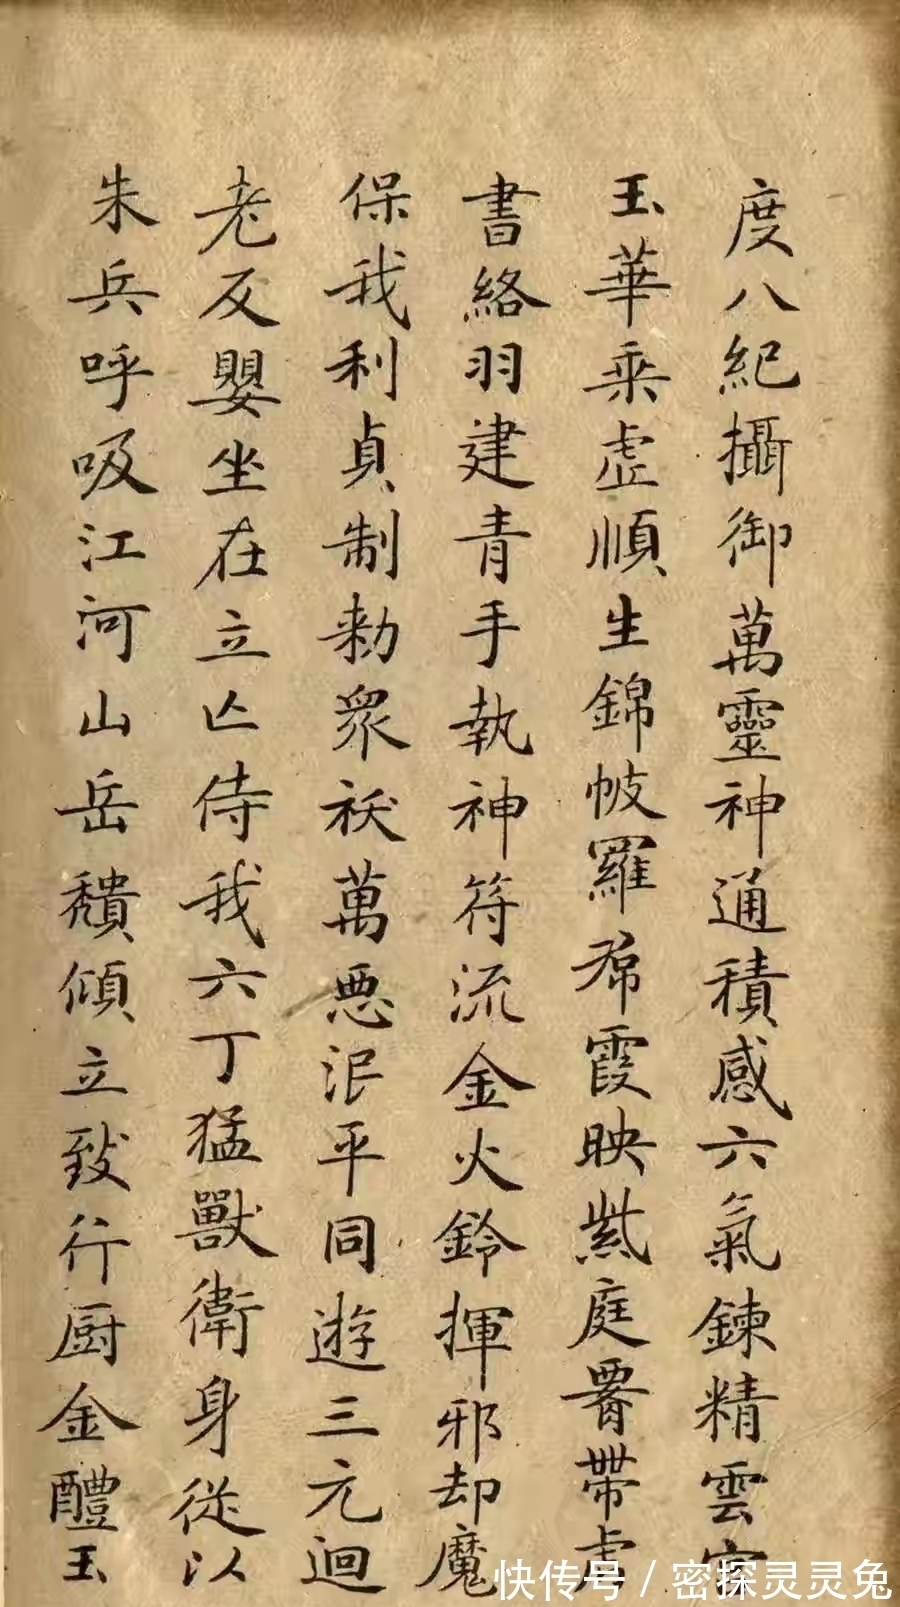 度八紀攝御萬靈神通積感六氣鍊精雲宮
玉華乘虛順生錦帔羅帬霞映紫庭帶虎
書絡羽建青手執神符流金火鈴揮邪却魔
保我利貞制勑眾祅萬惡泯平同遊三元迴
老反嬰坐在立亡侍我六丁猛獸衛身從以
朱兵呼吸江河山岳頹傾立致行厨金醴玉
快传号 / 密探灵灵兔